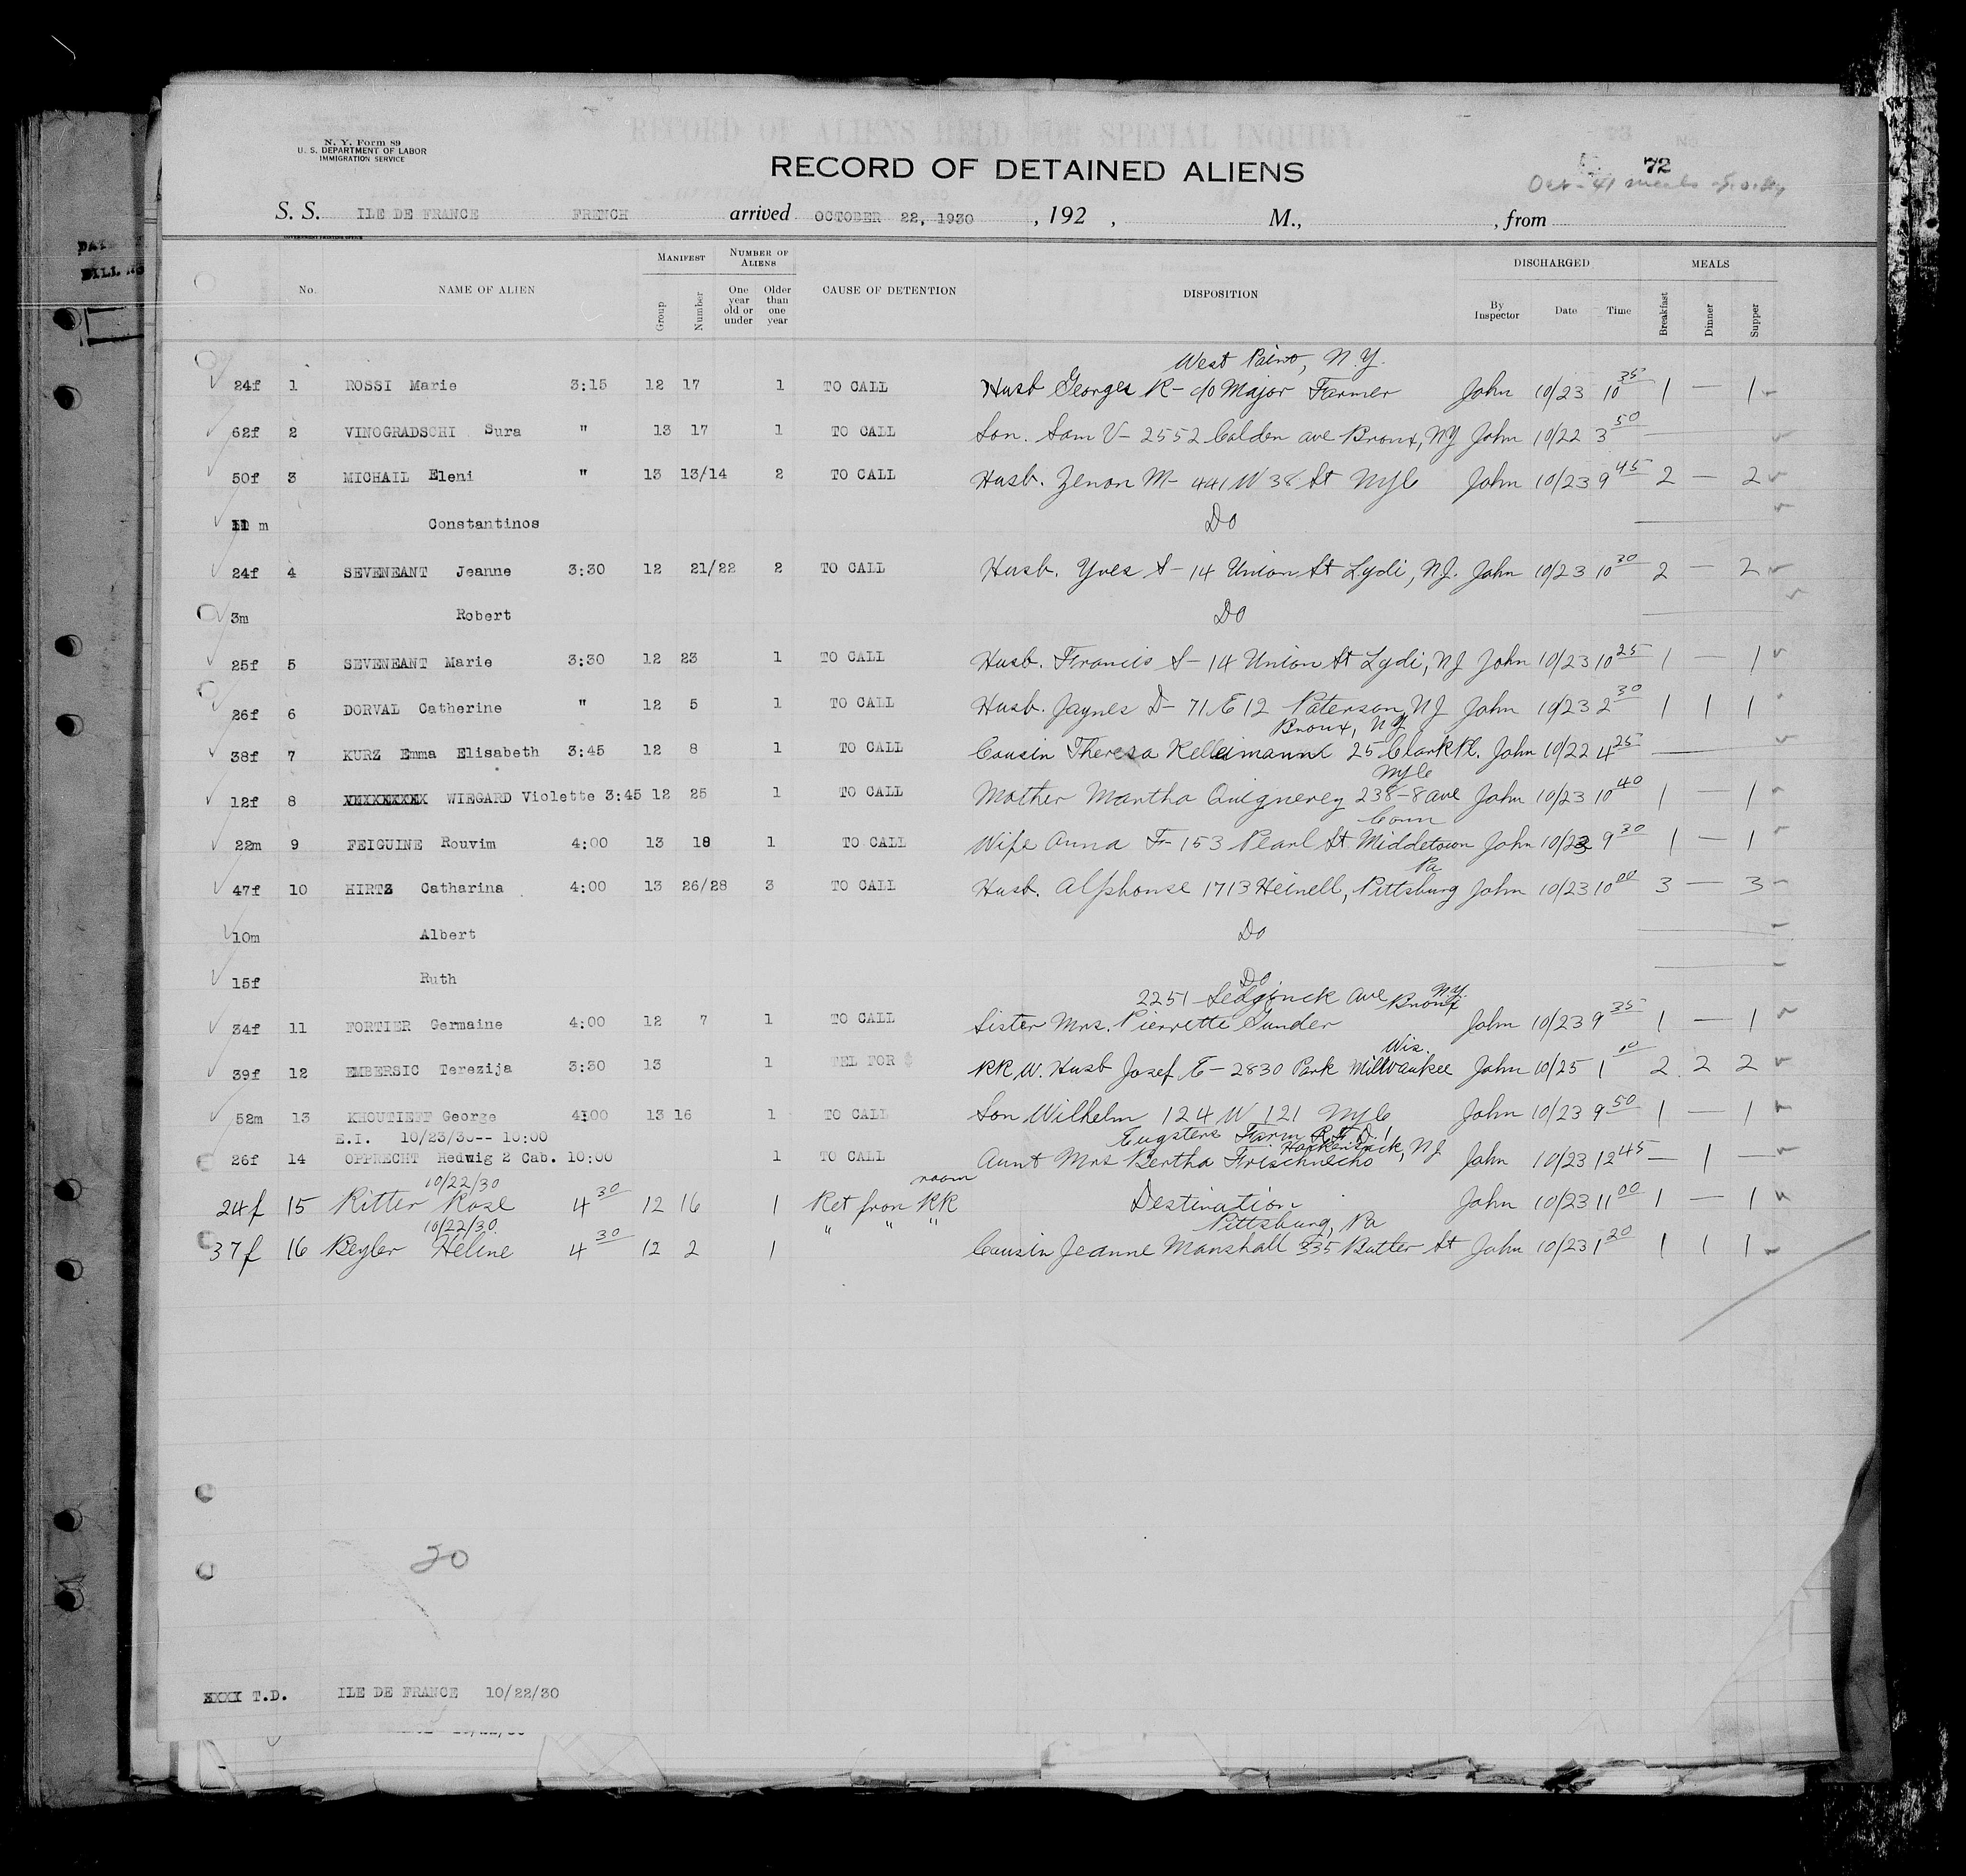 N. Y. Form 89
U. S. DEPARTMENT OF LABOR
IMMIGRATION SERVICE
RECORD OF ALIENS HELD FOR SPECIAL INQUIRY.
RECORD OF DETAINED ALIENS
72
S. S. ILE DE FRANCE FRENCH arrived OCTOBER 22, 1930 , 192 , M., , from
GOVERNMENT PRINTING OFFICE
No. NAME OF ALIEN MANIFEST Group Number NUMBER OF ALIENS One year old or under Older than one year CAUSE OF DETENTION DISPOSITION DISCHARGED By Inspector Date Time MEALS Breakfast Dinner Supper
West Point, N.Y.
24f 1 ROSSI Marie 3:15 12 17 1 TO CALL Husb Georges R- c/o Major Farmer John 10/23 10 35 1 — 1
62f 2 VINOGRADSCHI Sura " 13 17 1 TO CALL Son. Sam V- 2552 Colden ave Bronx, NY John 10/22 3 50
50f 3 MICHAIL Eleni " 13 13/14 2 TO CALL Husb. Zenon M- 441 W 38 St NYC John 10/23 9 45 2 — 2
11 m Constantinos Do
24f 4 SEVENEANT Jeanne 3:30 12 21/22 2 TO CALL Husb. Yves S- 14 Union St Lydi, NJ. John 10/23 10 30 2 — 2
3m Robert Do
25f 5 SEVENEANT Marie 3:30 12 23 1 TO CALL Husb. Francis S- 14 Union St Lydi, NJ John 10/23 10 25 1 — 1
26f 6 DORVAL Catherine " 12 5 1 TO CALL Husb. Jaynes D- 71 E 12 Paterson, NJ John 10/23 2 30 1 1 1
Bronx, NY
38f 7 KURZ Emma Elisabeth 3:45 12 8 1 TO CALL Cousin Theresa 25 Clark Pl. John 10/22 4 25
NYC
12f 8 WIEGARD Violette 3:45 12 25 1 TO CALL Mother Martha Quignerey 238-8 ave John 10/23 10 40 1 — 1
Conn
22m 9 FEIGUINE Rouvim 4:00 13 18 1 TO CALL Wife Anna F- 153 Pearl St Middletown John 10/23 9 30 1 — 1
Pa
47f 10 HIRTZ Catharina 4:00 13 26/28 3 TO CALL Husb. Alphonse 1713 Heinell, Pittsburg John 10/23 10 00 3 — 3
10m Albert Do
15f Ruth Do
2251 Sedgwick ave Bronx N.Y.
34f 11 FORTIER Germaine 4:00 12 7 1 TO CALL Sister Mrs. Pierrette Gunder John 10/23 9 35 1 — 1
Wis.
39f 12 EMBERSIC Terezija 3:30 13 1 TEL FOR $ RR W. Husb Josef E- 2830 Park Milwaukee John 10/25 1 10 2 2 2
52m 13 KHOUTIEFF George 4:00 13 16 1 TO CALL Son Wilhelm 124 W 121 NYC John 10/23 9 50 1 — 1
E.I. 10/23/30-- 10:00 Eugsters Farm R.F.D. 1 Hackensack, NJ
26f 14 OPPRECHT Hedwig 2 Cab. 10:00 1 TO CALL Aunt Mrs Bertha John 10/23 12 45 — 1 —
10/22/30 room
24f 15 Ritter Rose 4 30 12 16 1 Ret from RR Destination John 10/23 11 00 1 — 1
10/22/30 Pittsburg, Pa
37f 16 Beyler Heline 4 30 12 2 1 " " " Cousin Jeanne Manshall 335 Butler St John 10/23 1 20 1 1 1
20
T.D. ILE DE FRANCE 10/22/30